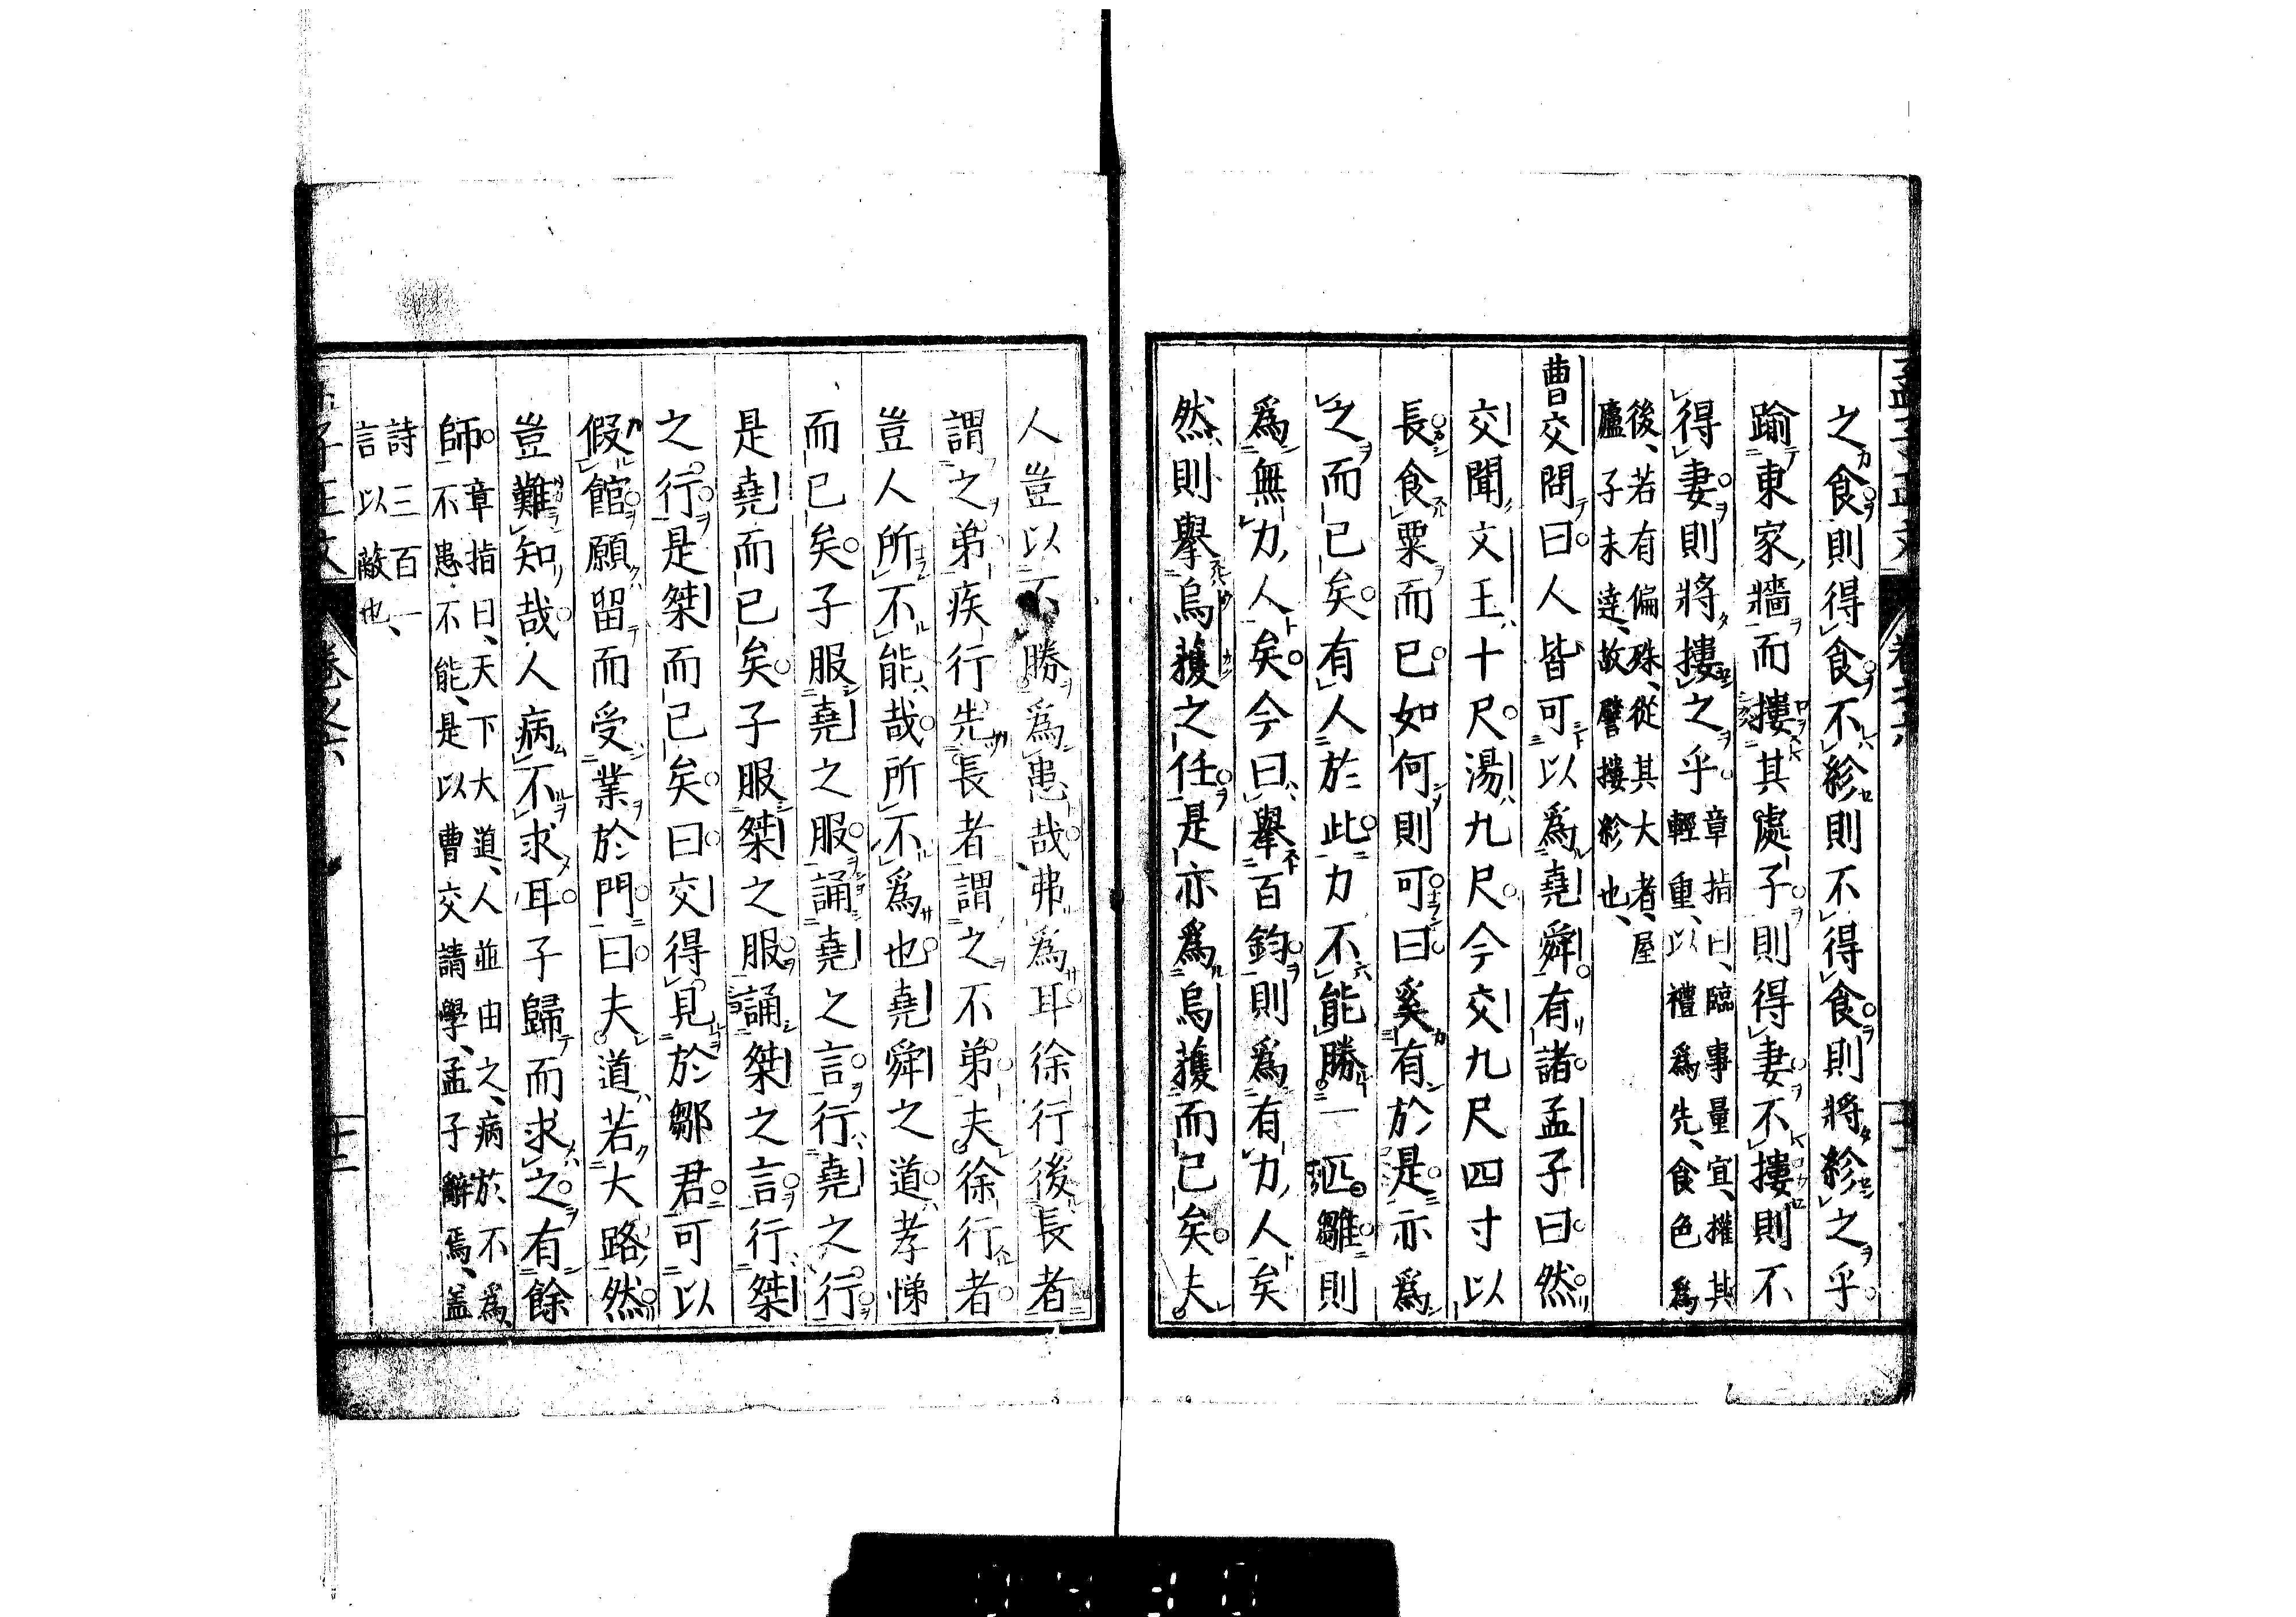 之食則得食不紾則不得食則將紾之乎
踰東家牆而摟其處子則得妻不摟則不
得妻則將摟之乎章指曰、臨事量宜、權其
輕重、以禮爲先、食色爲
後、若有偏殊、從其大者、屋
廬子未達、故譬摟紾也、
曹交問曰人皆可以爲堯舜有諸孟子曰然
交聞文王十尺湯九尺今交九尺四寸以
長食粟而已如何則可曰奚有於是亦爲
之而已矣有人於此力不能勝一匹雛則
爲無力人矣今曰舉百鈞則爲有力人矣
然則舉烏獲之任是亦爲烏獲而已矣夫
人豈以不勝爲患哉弗爲耳徐行後長者
謂之弟疾行先長者謂之不弟夫徐行者
豈人所不能哉所不爲也堯舜之道孝悌
而已矣子服堯之服誦堯之言行堯之行
是堯而已矣子服桀之服誦桀之言行桀
之行是桀而已矣曰交得見於鄒君可以
假館願留而受業於門曰夫道若大路然
豈難知哉人病不求耳子歸而求之有餘
師章指曰、天下大道、人並由之、病於不爲、
不患不能、是以曹交請學、孟子辭焉、盖
詩三百一
言以蔽也、